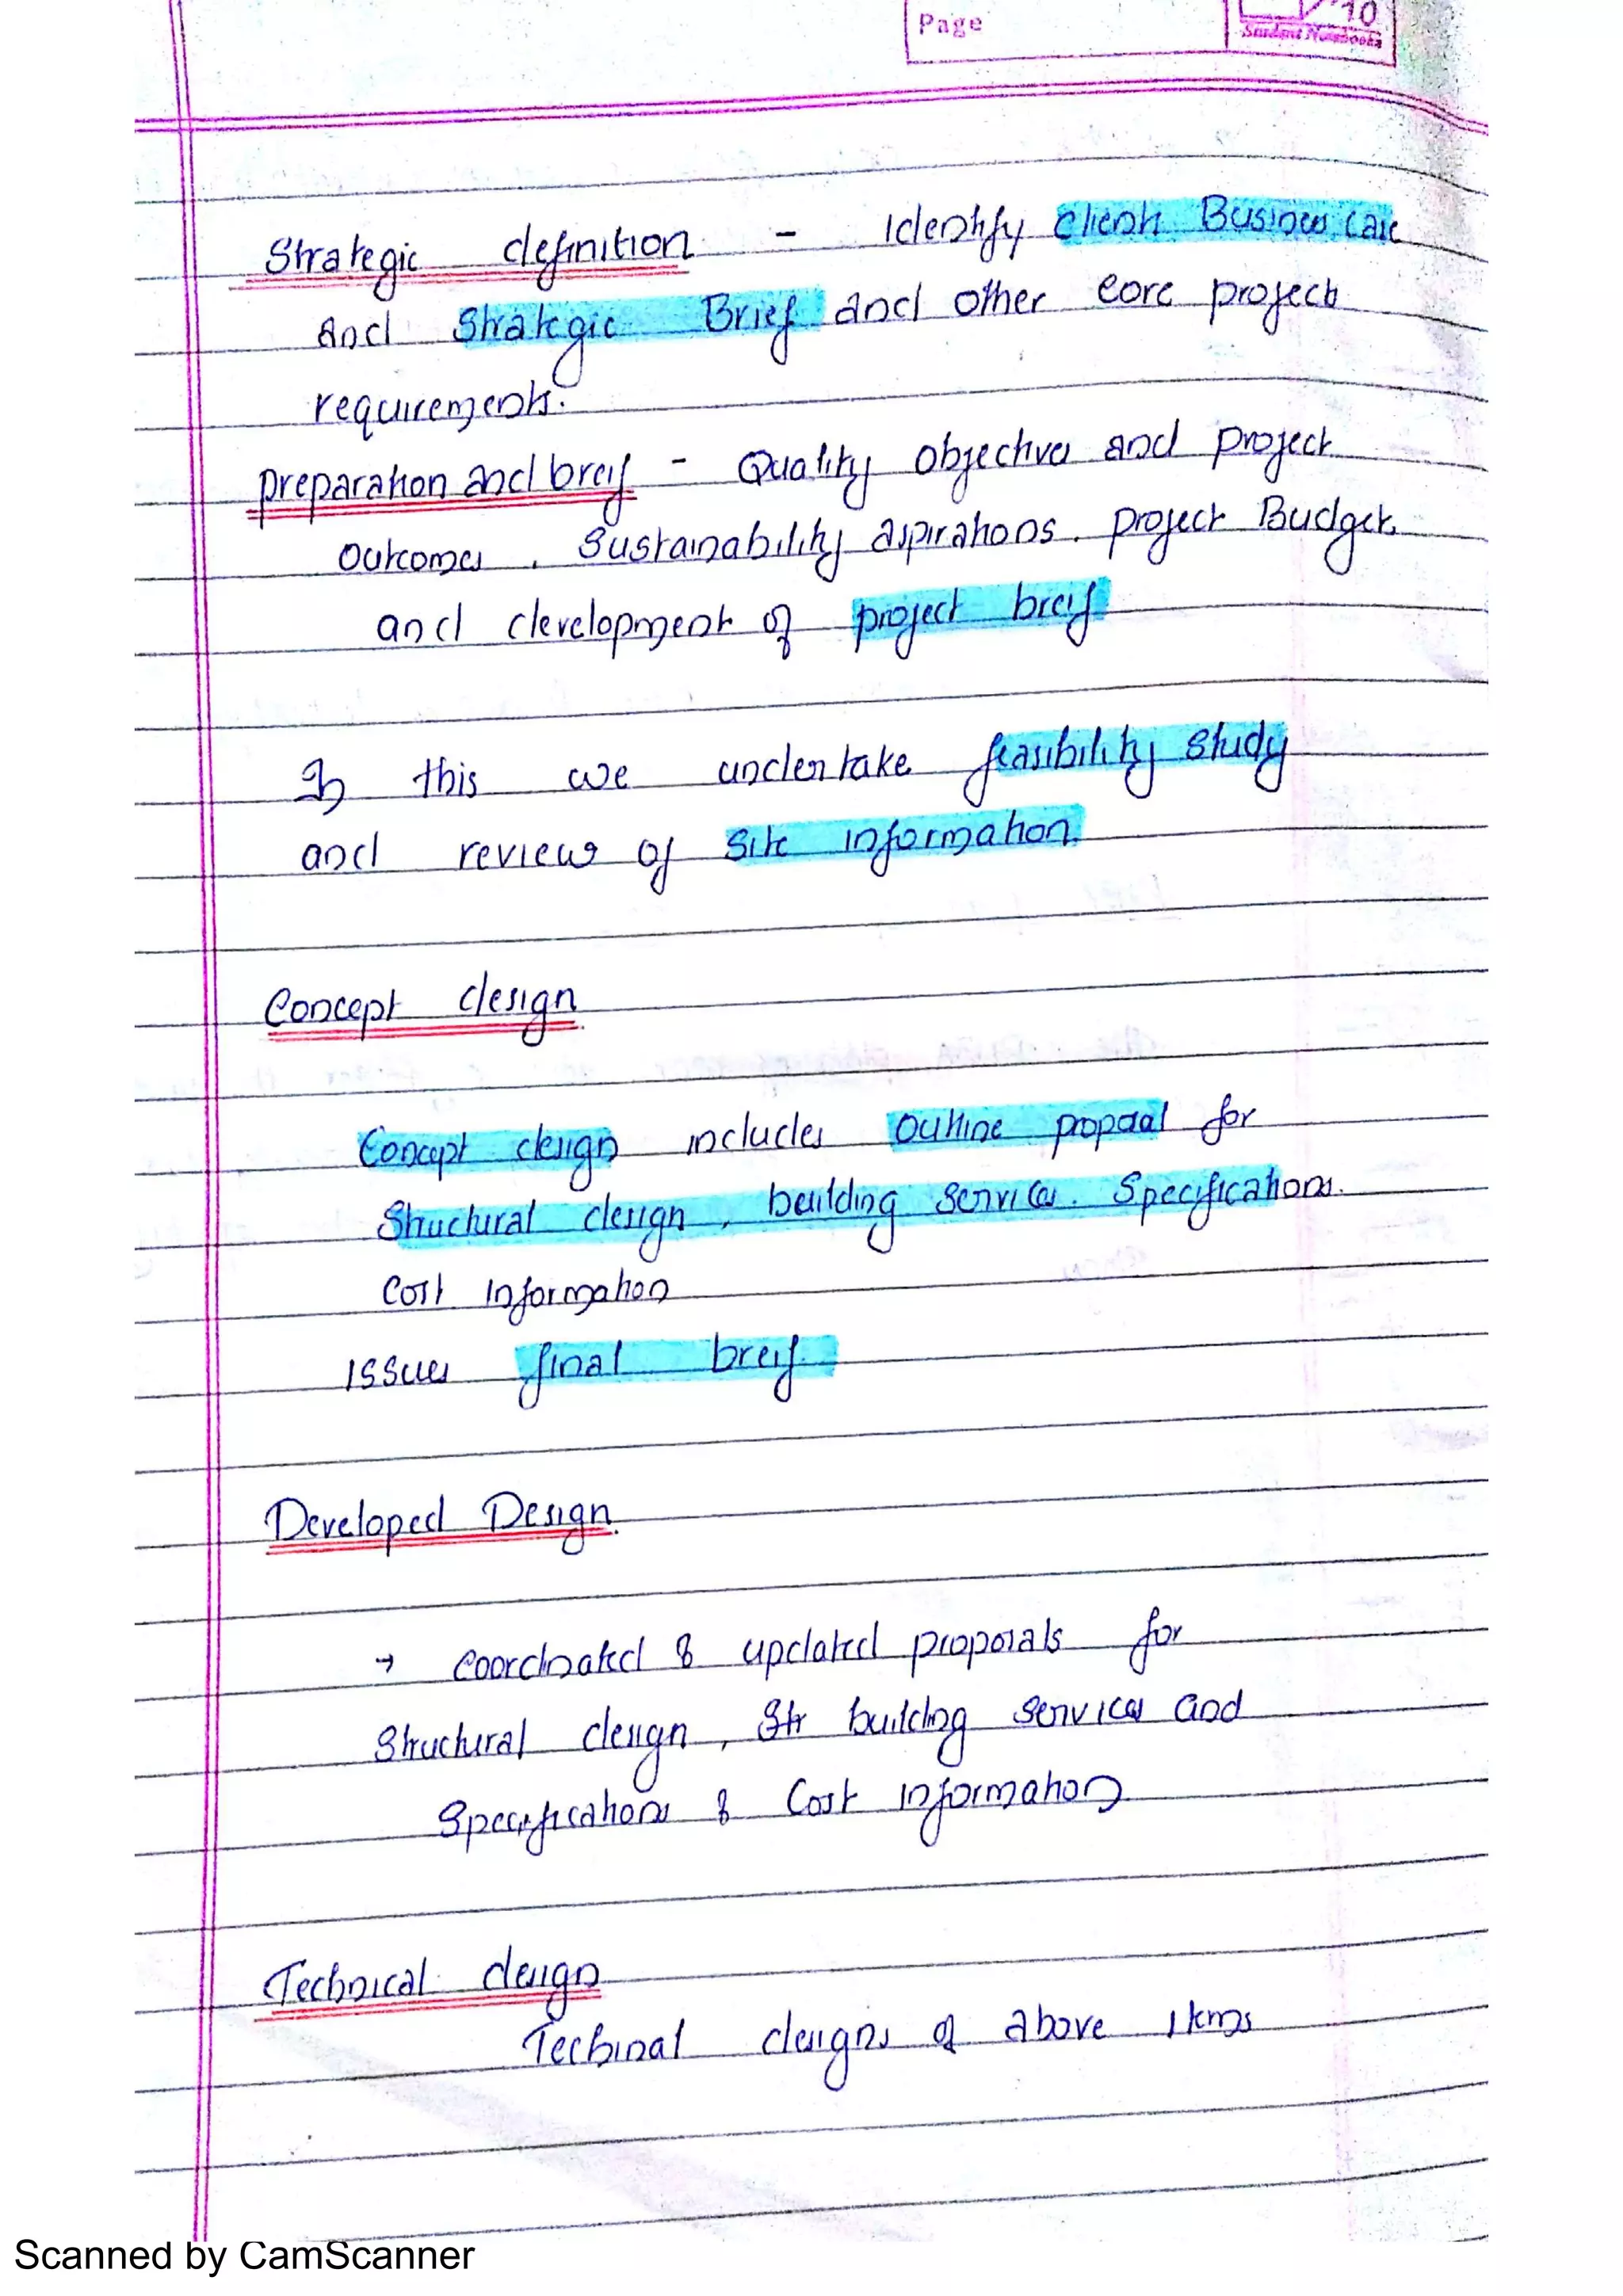 Page
10
Student Notebooks
Strategic definition - Identify Client Business Case
And Strategic Brief and other core project
requirements.
preparation and breif - Quality objectives and project
outcomes, Sustainability aspirations. project Budget.
and development of project breif
In this we undertake feasibility study
and review of Site information.
Concept design
Concept design includes outline proposal for
Structural design, building services. Specifications.
Cost Information
Issues final breif.
Developed Design.
→ Coordinated & updated proposals for
Structural design, Str building services and
Specifications & Cost information
Technical design
Techinal designs of above items
Scanned by CamScanner